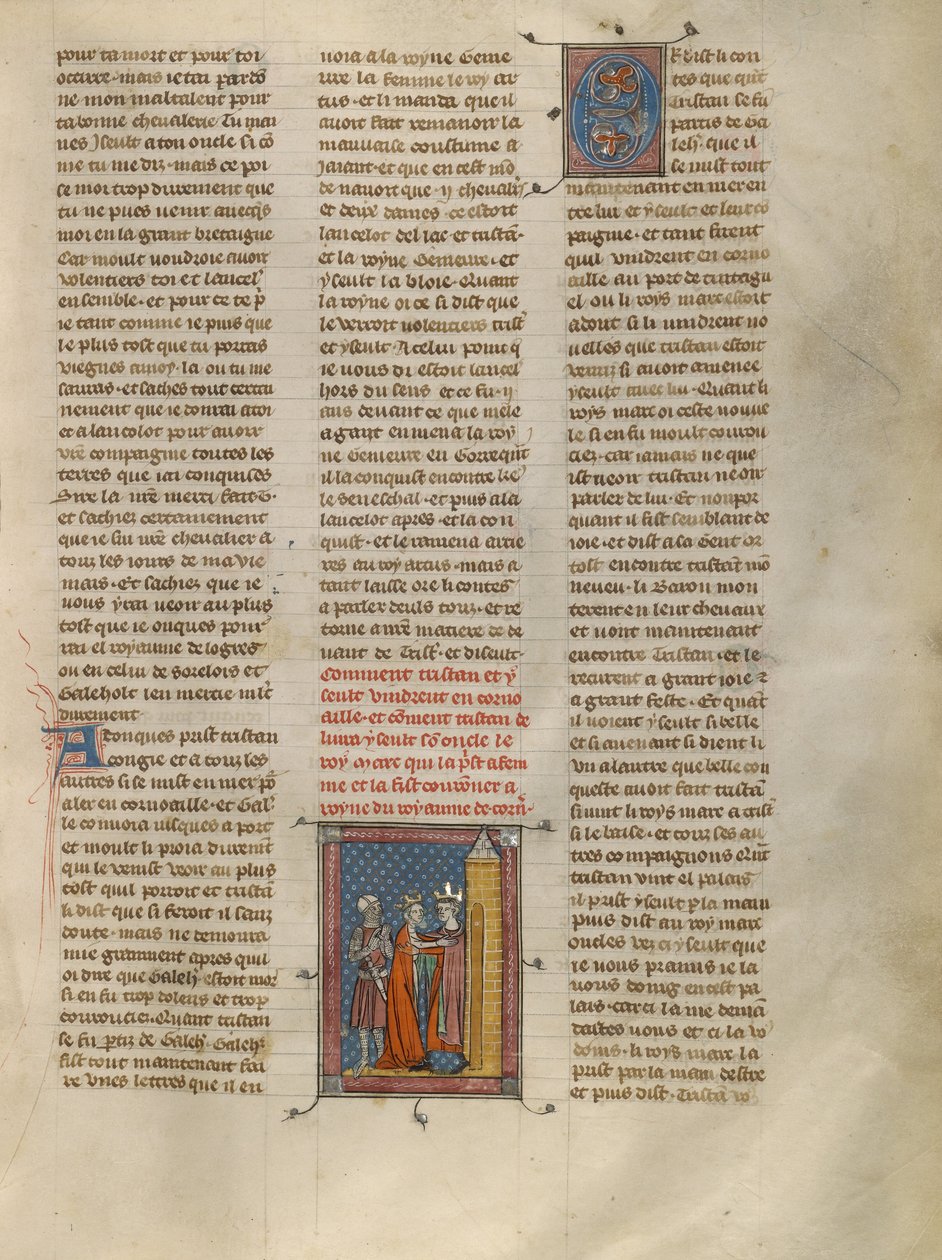 pour ta mort et pour toi
occirre · mais ie tai pardō
ne mon maltalent pour
ta bonne cheualerie Tu mai
nes yseult a ton oncle si cō
me tu me diz · mais ce poi
se moi trop durement que
tu ne pues uenir auecq̄s
moi en la grant bretaigne
Car moult uoudroie auoir
uolentiers toi et lancel̄
ensemble · et pour ce te p̄
ie tant comme ie puis que
le plus tost que tu porras
viegnes a moy · la ou tu me
sauras · et saches tout certai
nement que ie donrai a toi
et a lancolot pour auoir
vr̄e compaignie toutes les
terres que iai conquises
Sire la vr̄e merci fait .T.
et sachiez certainement
que ie sui vr̄e cheualier a
touz les iours de ma vie
mais · Et sachiez que ie
vous yrai ueoir au plus
tost que ie onques pour
rai el royaume de logres
ou en celui de sorelois et
Galeholt len mercie ml̄t
durement
Atonques prist tristan
congie et a touz les
autres si se mist en mer pō
aler en cornoaille · et Gal̄
le conuoia iusques a port
et moult li proia durem̄t
qui le uenist ueoir au plus
tost quil porroit et tristā
li dist que si feroit il sanz
doute · mais ne demoura
mie granment apres quil
oi dire que Galeh̄ · estoit mor
si en fu trop dolens et trop
courouciez · Quant tristan
se fu p̄tiz de Galeh̄ · Galeh̄
fist tout maintenant fai
re vnes lettres que il en
uoia a la royne Geme
ure la femme le roy ar
tus · et li manda que il
auoit fait remanoir la
mauuaise coustume a
Jaiant · et que en cest mō
de nauoit que .ij. cheualīs
et deux dames · ce estoit
lancelot del lac · et tristā ·
et la royne Gemeure · et
yseult la bloie · Quant
la royne oi ce si dist que
le verroit uolentiers trist̄
et yseult A celui point q̄
ie uous di estoit lancel̄
hors du sens et ce fu .ij.
ans deuant ce que mele
agant enmena la roy
ne Gemeure en Gorre quāt
il la conquist encontre ke
le seneschal · et puis a la
lancelot apres · et la con
quist · et le ramena arrie
res au roy artus · mais a
tant laisse ore li contes
a parler deuls touz · et re
torne a vr̄e matiere de de
uant de Trist̄ · et diseult ·
Comment tristan et y
seult vindrent en corno
aille · et cōment tristan de
liura yseult sō oncle le
roy marc qui la p̄st a fem
me et la fist couronner a
royne du royaume de corn̄ ·
Et dist li con
tes que quāt
Tristan se fu
partis de Ga
leh̄ · que il
se mist tout
maintenant en mer en
tre lui et yseult et leur cō
paignie · et tant firent
quil vindrent en corno
aille au port de tintagu
el ou li roys marc estoit
adont si li vindrent no
uelles que tristan estoit
venuz si auoit amenee
yseult auec lui · Quant li
roys marc oi ceste nouue
le si en fu moult courou
ciez · car iamais ne que
ist neoir tristan ne oir
parler de lui · Et nonpor
quant il fist semblant de
ioie · et dist a sa gent or
tost encontre tristāt mō
neueu · li Baron mon
terent en leur cheuaux
et uont maintenant
encontre Tristan · et le
recurent a grant ioie z
a grant feste · Et quāt
il uoient yseult si belle
et si auenant si dient li
vn a lautre que belle con
queste auoit fait tristā
si vint li roys marc a trist̄
si le baise · et touz ses au
tres compaignons Quāt
tristan vint el palais
il prist yseult p̄ la main
puis dist au roy marc
oncles vez ci yseult que
ie uous pramis ie la
uous doing en cest pa
lais · car ci la me demā
dastes uous et ci la vo
doins · li roys marc la
prist par la main destre
et puis dist · Tristā vo